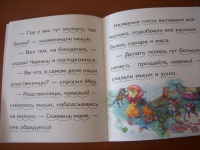 — Где у вас тут молоко, где
белки? — зашипели мыши.
— Вон там, на блюдечке, —
сказал Черныш и посторонился.
— Вы что, в самом деле наши
родственницы? — спросил Мяу.
— Родственницы, чужеви!
смеялись мыши, набрасываясь
на молоко. — Скажешь маме,
она обрадуется!
Незваные гости вылакали всё
молоко, подобрали все кусочки
булки, сахара и мяса.
— Делать теперь тут больше
нечего, прощайте, невежи!
сказали мыши и ушли.